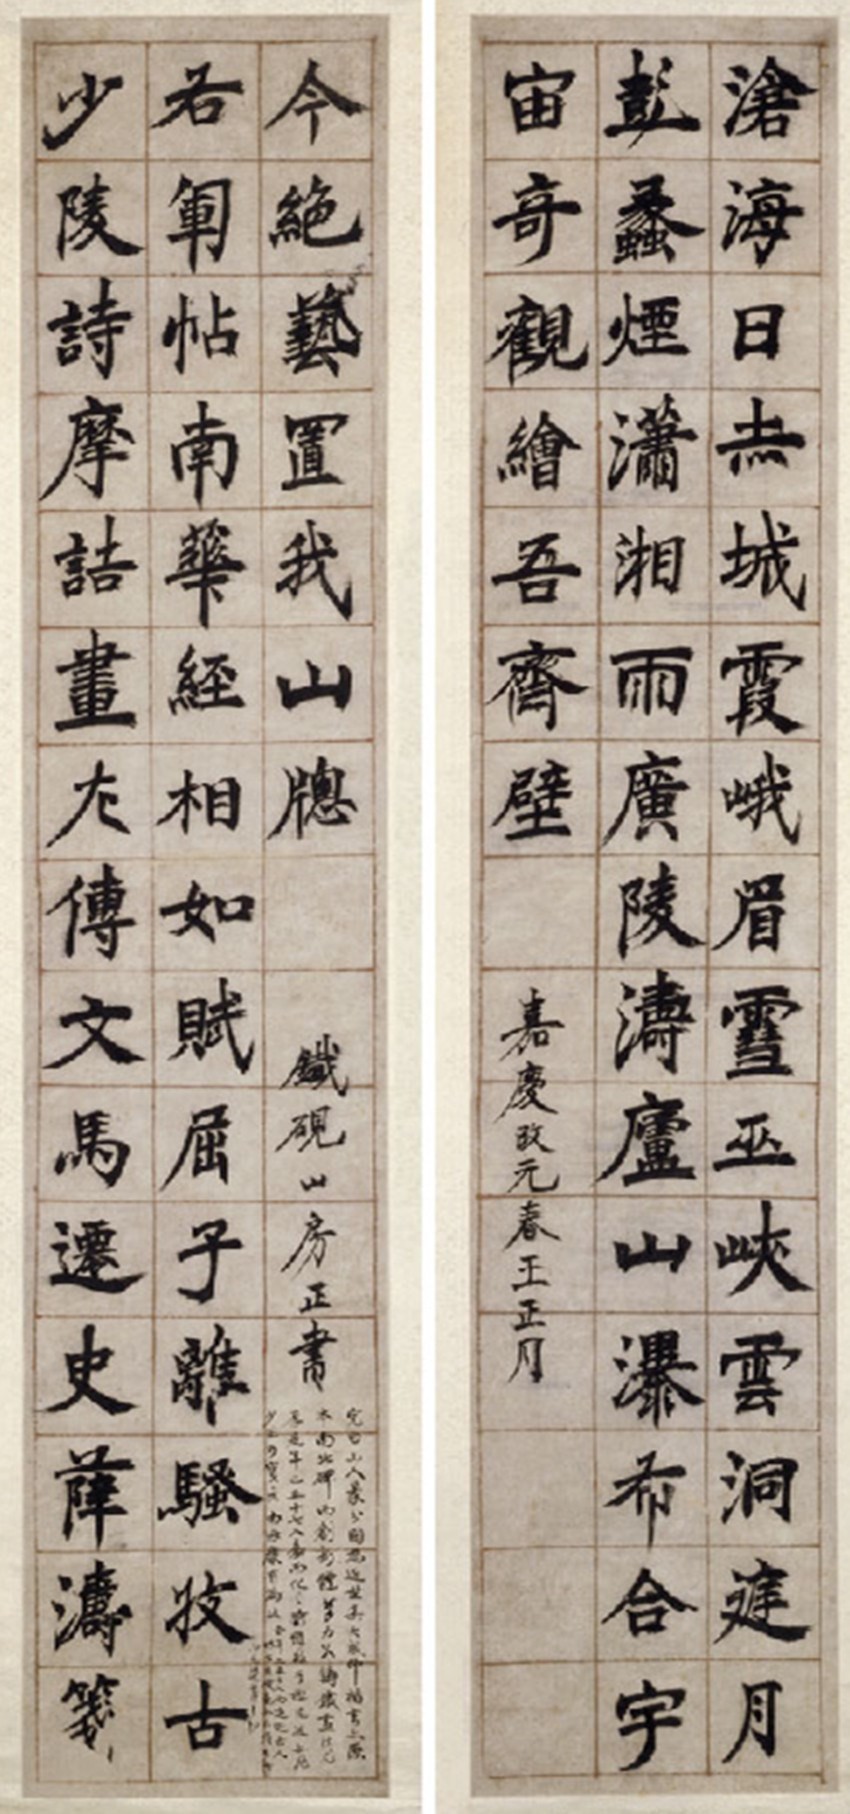 滄海日赤城霞峨眉雪巫峽雲洞庭月
彭蠡煙瀟湘雨廣陵濤廬山瀑布合宇
宙奇觀繪吾齊壁
嘉慶改元春王正月
少陵詩摩詰畫左傳文馬遷史薛濤箋
右軍帖南華經相如賦屈子離騷收古
今絕藝置我山牕
鐵硯山房正書
完白山人篆分固